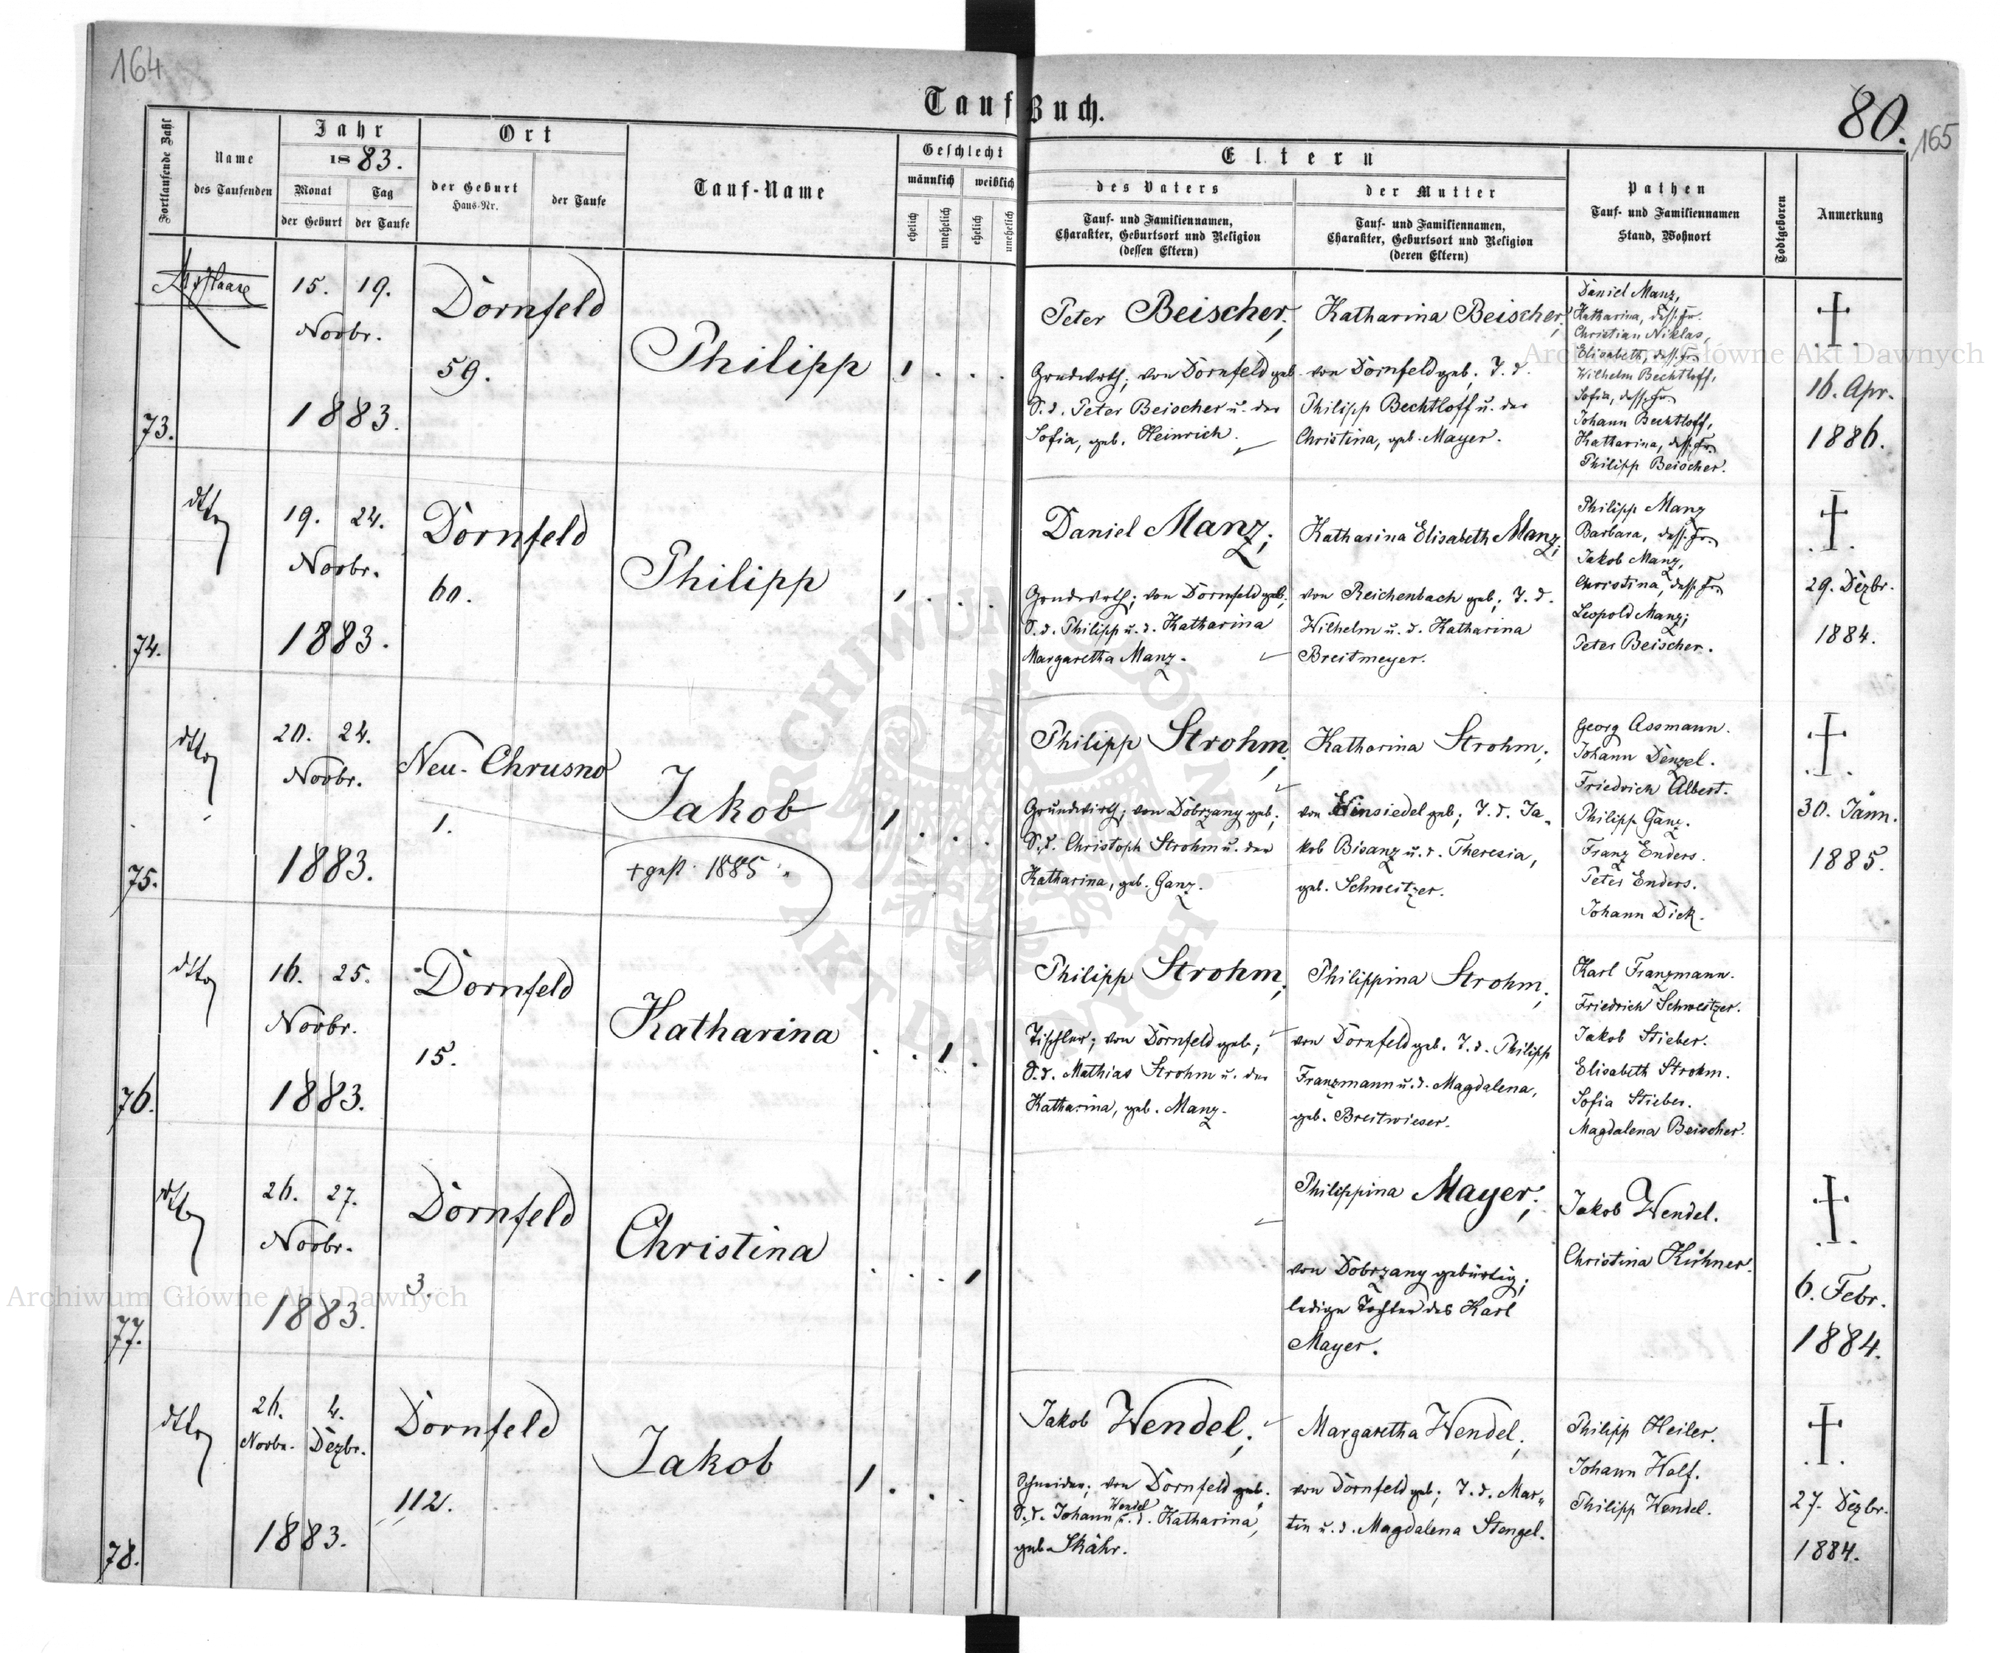 164
Tauf Buch.
80.
165
Fortlaufende Zahl
Name
des Taufenden
Jahr
1883.
Monat
der Geburt
Tag
der Taufe
Ort
der Geburt
Haus-Nr.
der Taufe
Tauf-Name
Geschlecht
männlich
weiblich
ehelich
unehelich
ehelich
unehelich
Eltern
des Vaters
Tauf- und Familiennamen,
Charakter, Geburtsort und Religion
(dessen Eltern)
der Mutter
Tauf- und Familiennamen,
Charakter, Geburtsort und Religion
(deren Eltern)
Pathen
Tauf- und Familiennamen
Stand, Wohnort
Todtgeboren
Anmerkung
73.
15. 19.
Novbr.
1883.
Dornfeld
59.
Philipp
1 . . .
Peter Beischer;
Grundwirth; von Dornfeld geb.
S. d. Peter Beischer u. der
Sofia, geb. Heinrich.
Katharina Beischer;
von Dornfeld geb. T. d.
Philipp Bechtloff u. der
Christina, geb. Mayer.
Daniel Manz,
Katharina, dess. Fr.
Christian Niklas,
Elisabeth, dess. Fr.
Wilhelm Bechtloff,
Sofia, dess. Fr.
Johann Bechtloff,
Katharina, dess. Fr.
Philipp Beischer.
16. Apr.
1886.
74.
dtto
19. 24.
Novbr.
1883.
Dornfeld
60.
Philipp
1 . . .
Daniel Manz;
Grundwirth; von Dornfeld geb.;
S. d. Philipp u. d. Katharina
Margaretha Manz.
Katharina Elisabeth Manz;
von Reichenbach geb; T. d.
Wilhelm u. d. Katharina
Breitmeyer.
Philipp Manz
Barbara, dess. Fr.
Jakob Manz,
Christina, dess. Fr.
Leopold Manz;
Peter Beischer.
29. Dezbr.
1884.
75.
dtto
20. 24.
Novbr.
1883.
Neu-Chrusno
1.
Jakob
+ gest. 1885.
1 . . .
Philipp Strohm;
Grundwirth; von Dobrzany geb;
S. d. Christoph Strohm u. der
Katharina, geb. Ganz.
Katharina Strohm;
von Einsiedel geb; T. d. Ja-
kob Bisanz u. d. Theresia,
geb. Schweitzer.
Georg Assmann.
Johann Denzel.
Friedrich Albert.
Philipp Ganz.
Franz Enders.
Peter Enders.
Johann Dick.
30. Jänn.
1885.
76.
dtto
16. 25.
Novbr.
1883.
Dornfeld
15.
Katharina
. . 1 .
Philipp Strohm;
Tischler; von Dornfeld geb;
S. d. Mathias Strohm u. der
Katharina, geb. Manz.
Philippina Strohm;
von Dornfeld geb. T. d. Philipp
Franzmann u. d. Magdalena,
geb. Breitwieser.
Karl Franzmann.
Friedrich Schweitzer.
Jakob Stieber.
Elisabeth Strohm.
Sofia Stieber.
Magdalena Beischer.
77.
dtto
26. 27.
Novbr.
1883.
Dornfeld
3.
Christina
. . . 1
Philippina Mayer;
von Dobrzany gebürtig;
ledige Tochter des Karl
Mayer.
Jakob Wendel.
Christina Kirhner.
6. Febr.
1884.
78.
dtto
26. 4.
Novbr. Dezbr.
1883.
Dornfeld
112.
Jakob
1 . . .
Jakob Wendel;
Schneider; von Dornfeld geb.
Wendel
S. d. Johann u. d. Katharina,
geb. Skähr.
Margaretha Wendel;
von Dornfeld geb; T. d. Mar-
tin u. d. Magdalena Stengel.
Philipp Heiler.
Johann Half.
Philipp Wendel.
27. Dezbr.
1884.
Archiwum Główne Akt Dawnych
Archiwum Główne Akt Dawnych